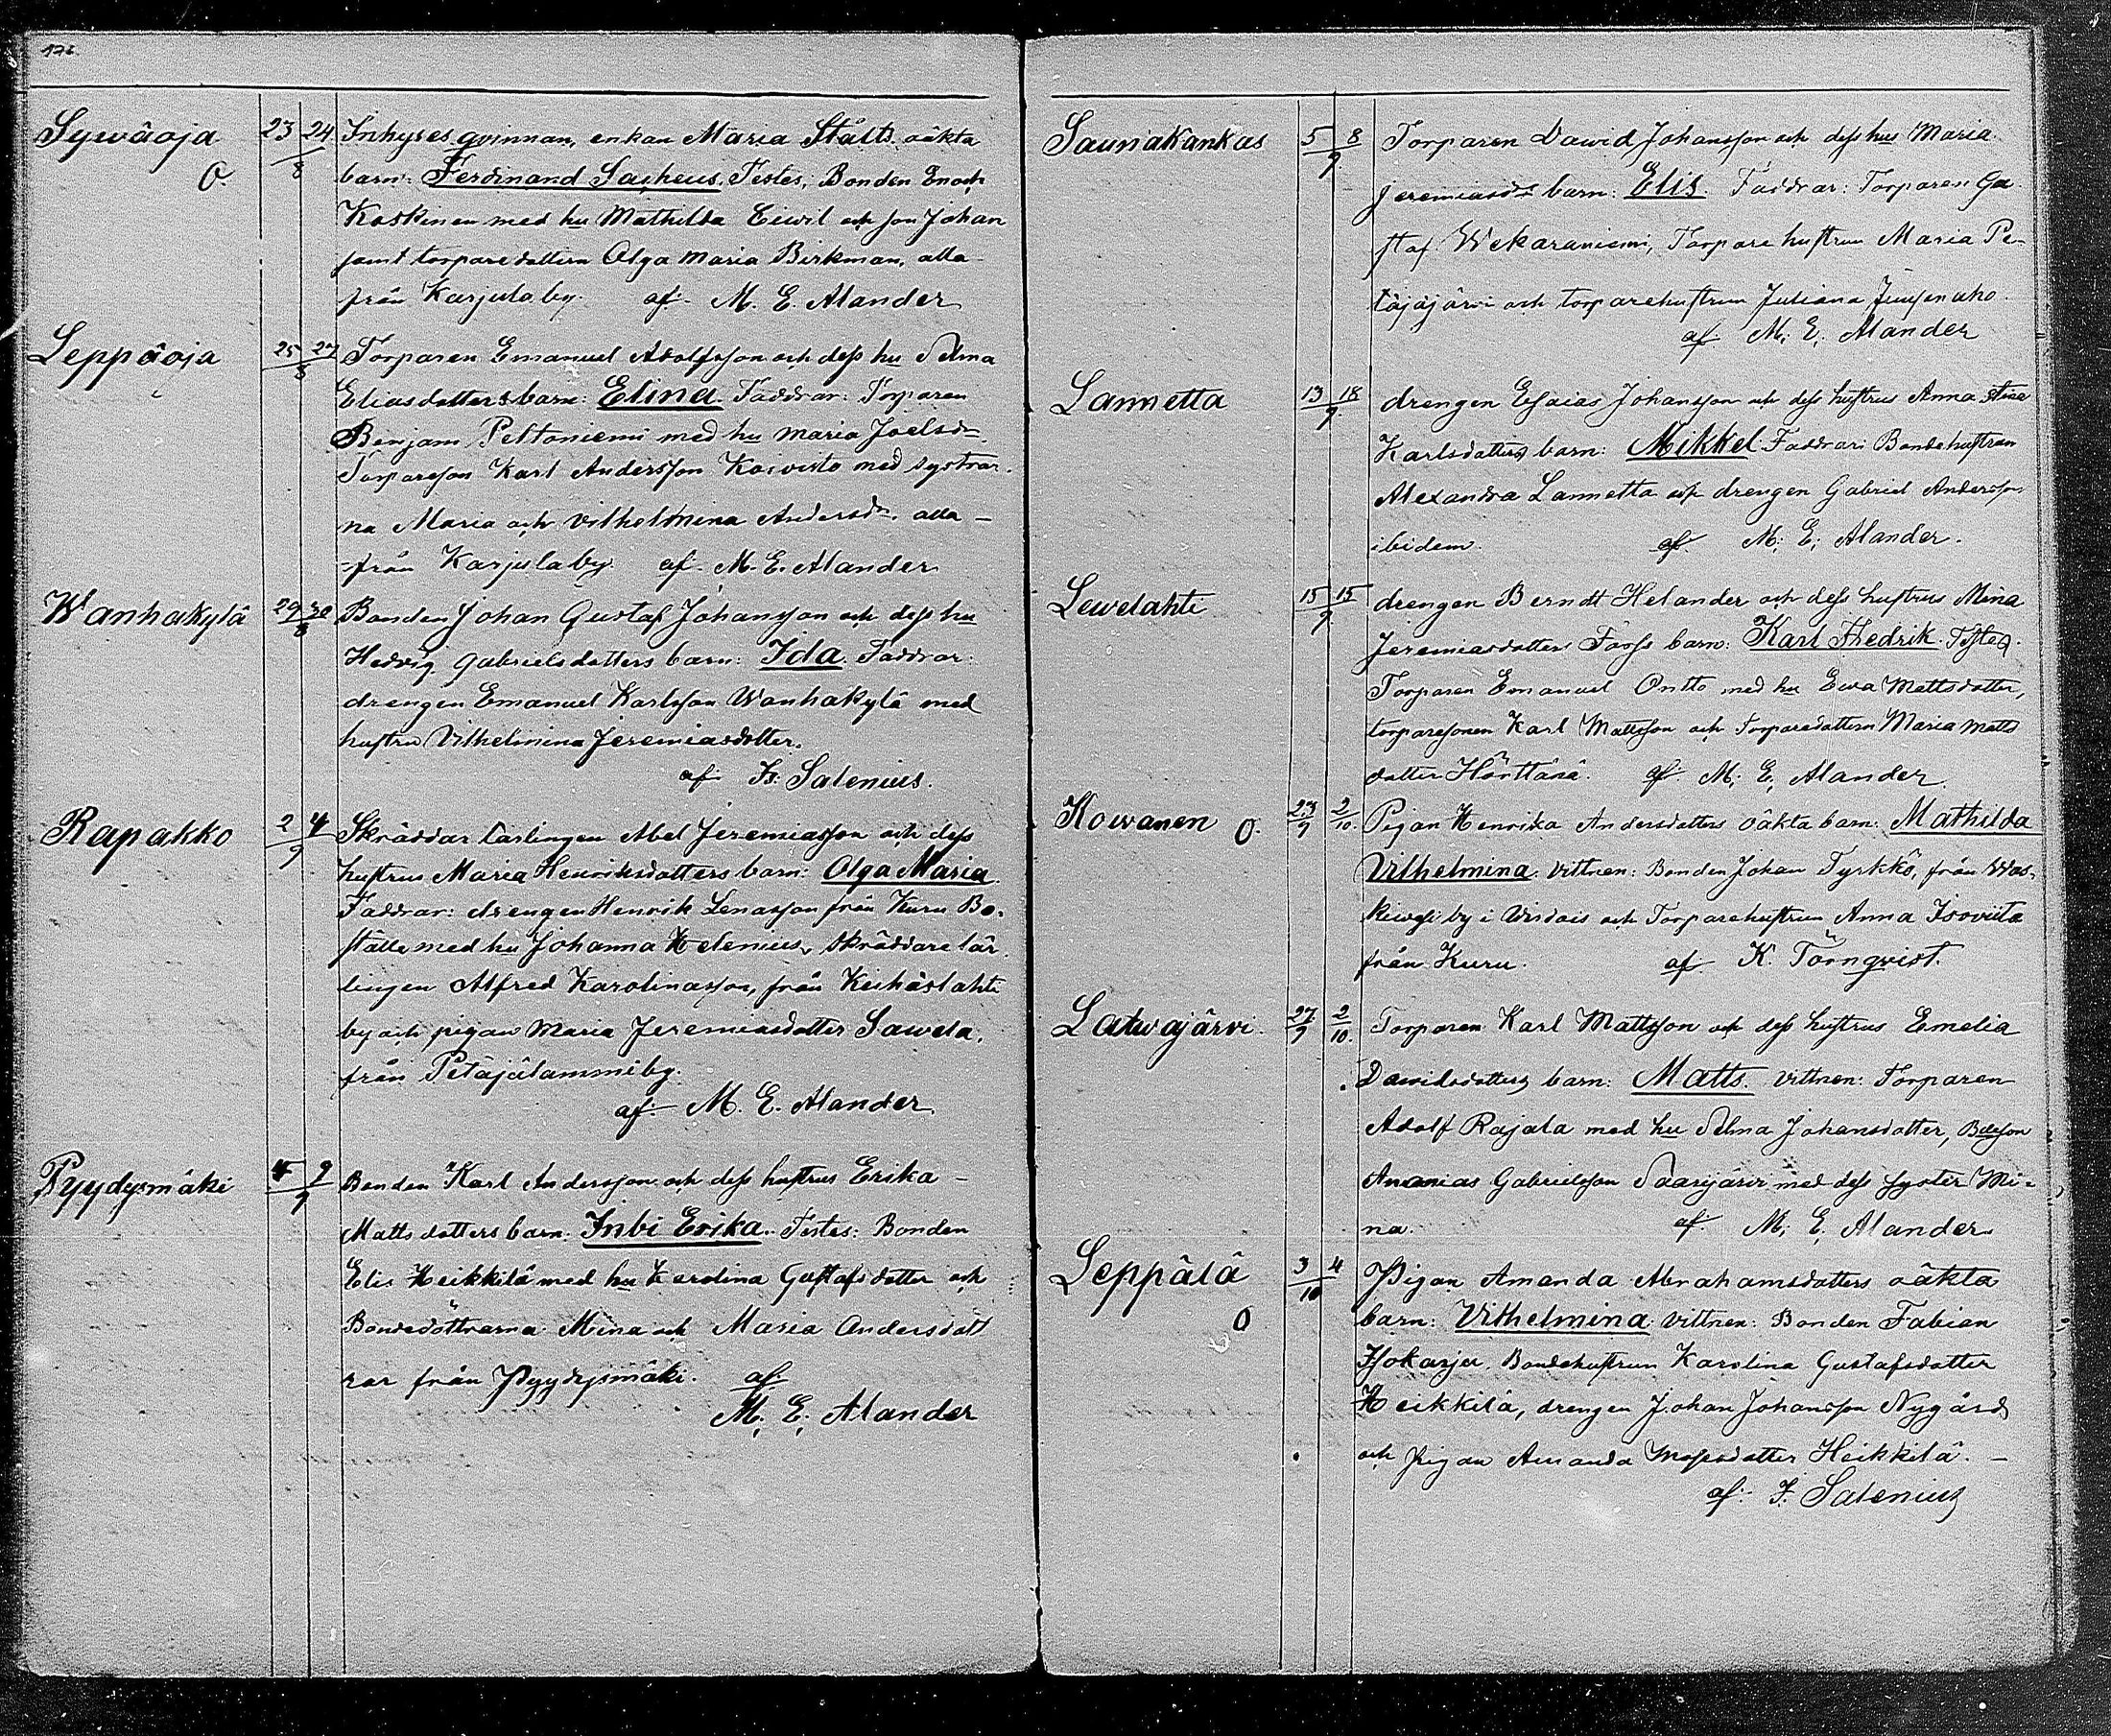 176.
Sywäoja 23 24 Inhyses qvinnan, enkan Maria Ståls oäkta
O. 8 barn: Ferdinand Sacheus. Testes: Bonden Enoch
Koskinen med hu Mathilda Eiwil och son Johan
samt torparedottern Olga Maria Birkman, alla
från Karjula by. af. M. E. Alander
Leppäoja 25 27 Torparen Emanuel Adolfsson och dess hu Selma
8 Eliasdotters barn: Elina. Faddrar: Torparen
Benjam Peltoniemi med hu Maria Joelsdr
Torpareson Karl Andersson Koivisto med systrar
na Maria och Vilhelmina Andersdr. alla
från Karjula by. af. M. E. Alander
Wanhakylä 29 30 Bonden Johan Gustaf Johansson och dess hu
8 Hedvig Gabrielsdotters barn: Ida. Faddrar:
drengen Emanuel Karlsson Wanhakylä med
hustru Vilhelmina Jeremiasdotter.
af. Fr. Salenius.
Rapakko 2 4 Skräddar lärlingen Abel Jeremiasson och dess
9 hustrus Maria Henriksdotters barn: Olga Maria.
Faddrar: drengen Henrik Lenasson från Kuru Bo-
ställe med hu Johanna Helenius, skräddare lär
lingen Alfred Karolinasson, från Keihäslahti
by och pigan Maria Jeremiasdotter Sawela,
från Petäjälammi by.
af. M. E. Alander.
Pyydysmäki 4 9 Bonden Karl Andersson och dess hustrus Erika
9 Matts dotters barn: Inbi Erika. Testes: Bonden
Elis Heikkilä med hu Karolina Gustafsdotter och
Bondedöttrarna Mina och Maria Andersdött
rar från Pyydysmäki. af.
M. E. Alander
Saunakankas 5 8 Torparen Dawid Johansson och dess hus Maria
9 Jeremiasdrs barn: Elis. Faddrar: Torparen Gu
staf Wekaraniemi, Torpare hustrun Maria Pe-
täjäjärvi och torparehustrun Juliana Juusenaho.
af M. E. Alander
Lannetta 13 18 drengen Esaias Johansson och dess hustrus Anna Stina
9 Karlsdotters barn: Mikkel. Faddrar: Bondehustrun
Alexandra Lannetta och drengen Gabriel Andersson
ibidem. af. M. E. Alander.
Lewelahti 15 15 drengen Berndt Helander och dess hustrus Mina
9 Jeremiasdotters Forss barn: Karl Fredrik. Testes.
Torparen Emanuel Ontto med hu Ewa Mattsdotter,
torparesonen Karl Mattsson och Torparedottern Maria Matts
dotter Hörttänä. af. M. E. Alander.
Kowanen 23 2 Pigan Henrika Andersdotters oäkta barn: Mathilda
O. 9 10. Vilhelmina. Vittnen: Bonden Johan Tyrkkö, från Was-
kiwesi by i Wirdois och Torparehustrun Anna Isoviita
från Kuru. af K. Törnqvist.
Latwajärvi 27 2 Torparen Karl Mattsson och dess hustrus Emelia
9 10. Dawidsdotters barn: Matts. Vittnen: Torparen
Adolf Rajala med hu Selma Johansdotter, Bdeson
Ananias Gabrielsson Saarijärvi med dess syster Mi-
na. af. M. E. Alander
Leppälä 3 4 Pigan Amanda Abrahamsdotters oäkta
O 10 barn: Vilhelmina. Vittnen: Bonden Fabian
Isokarju. Bondehustrun Karolina Gustafsdotter
Heikkilä, drengen Johan Johansson Nygård
och Pigan Amanda Mosesdotter Heikkilä.
af. F. Salenius